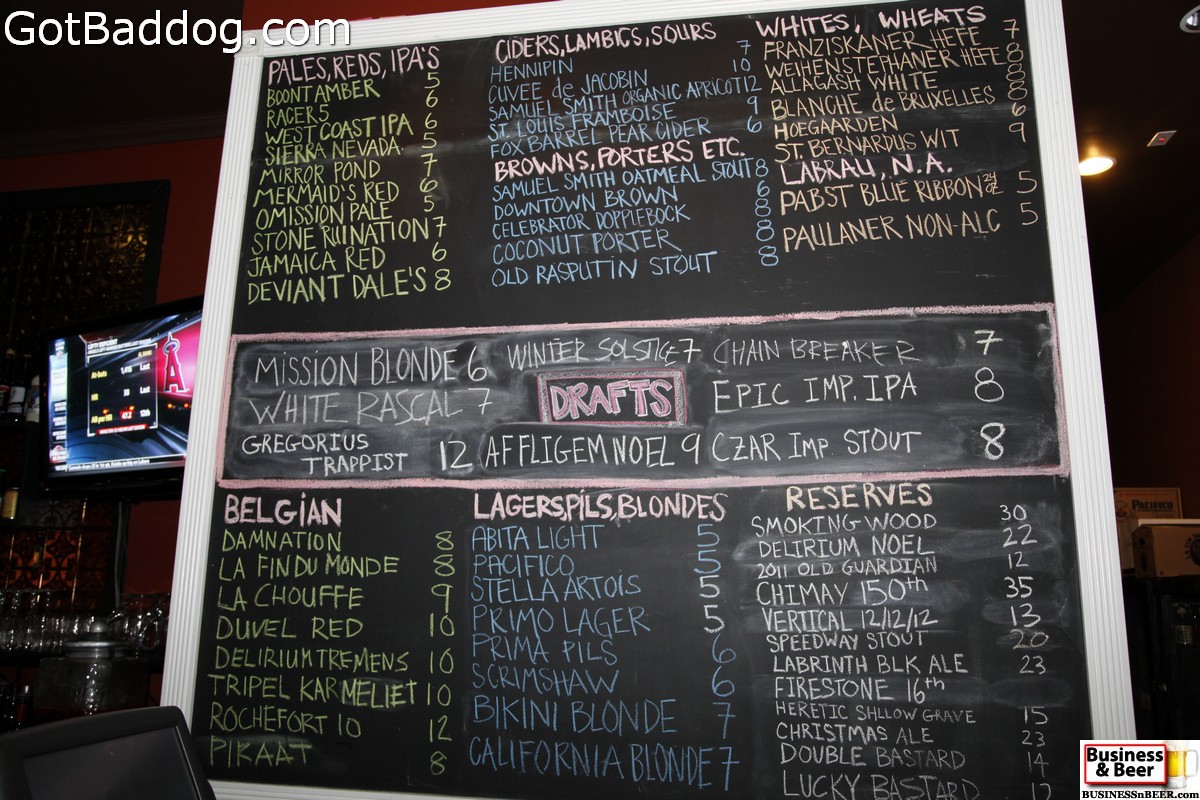 GotBaddog.com
PALES, REDS, IPA'S
BOONT AMBER 5
RACER 5 6
WEST COAST IPA 6
SIERRA NEVADA 5
MIRROR POND 7
MERMAID'S RED 6
OMISSION PALE 5
STONE RUINATION 7
JAMAICA RED 6
DEVIANT DALE'S 8
CIDERS, LAMBICS, SOURS
HENNIPIN 7
CUVEE de JACOBIN 10
SAMUEL SMITH ORGANIC APRICOT 12
ST. LOUIS FRAMBOISE 9
FOX BARREL PEAR CIDER 6
BROWNS, PORTERS ETC.
SAMUEL SMITH OATMEAL STOUT 8
DOWNTOWN BROWN 6
CELEBRATOR DOPPLEBOCK 8
COCONUT PORTER 8
OLD RASPUTIN STOUT 8
WHITES, WHEATS
FRANZISKANER HEFE 7
WEIHENSTEPHANER HEFE 8
ALLAGASH WHITE 8
BLANCHE de BRUXELLES 8
HOEGAARDEN 6
ST. BERNARDUS WIT 9
LABRAU, N.A.
PABST BLUE RIBBON 24 OZ 5
PAULANER NON-ALC 5
MISSION BLONDE 6
WHITE RASCAL 7
GREGORIUS
TRAPPIST 12
WINTER SOLSTICE 7
DRAFTS
AFFLIGEM NOEL 9
CHAIN BREAKER 7
EPIC IMP. IPA 8
CZAR IMP STOUT 8
BELGIAN
DAMNATION 8
LA FIN DU MONDE 8
LA CHOUFFE 9
DUVEL RED 10
DELIRIUM TREMENS 10
TRIPEL KARMELIET 10
ROCHEFORT 10 12
PIKAAT 8
LAGERS, PILS, BLONDES
ABITA LIGHT 5
PACIFICO 5
STELLA ARTOIS 5
PRIMO LAGER 5
PRIMA PILS 6
SCRIMSHAW 6
BIKINI BLONDE 7
CALIFORNIA BLONDE 7
RESERVES
SMOKING WOOD 30
DELIRIUM NOEL 22
2011 OLD GUARDIAN 12
CHIMAY 150th 35
VERTICAL 12/12/12 13
SPEEDWAY STOUT 20
LABRINTH BLK ALE 23
FIRESTONE 16th
HERETIC SHLLOW GRAVE 15
CHRISTMAS ALE 23
DOUBLE BASTARD 14
LUCKY BASTARD 12
PACIFICO
Business
& Beer
BUSINESSnBEER.com